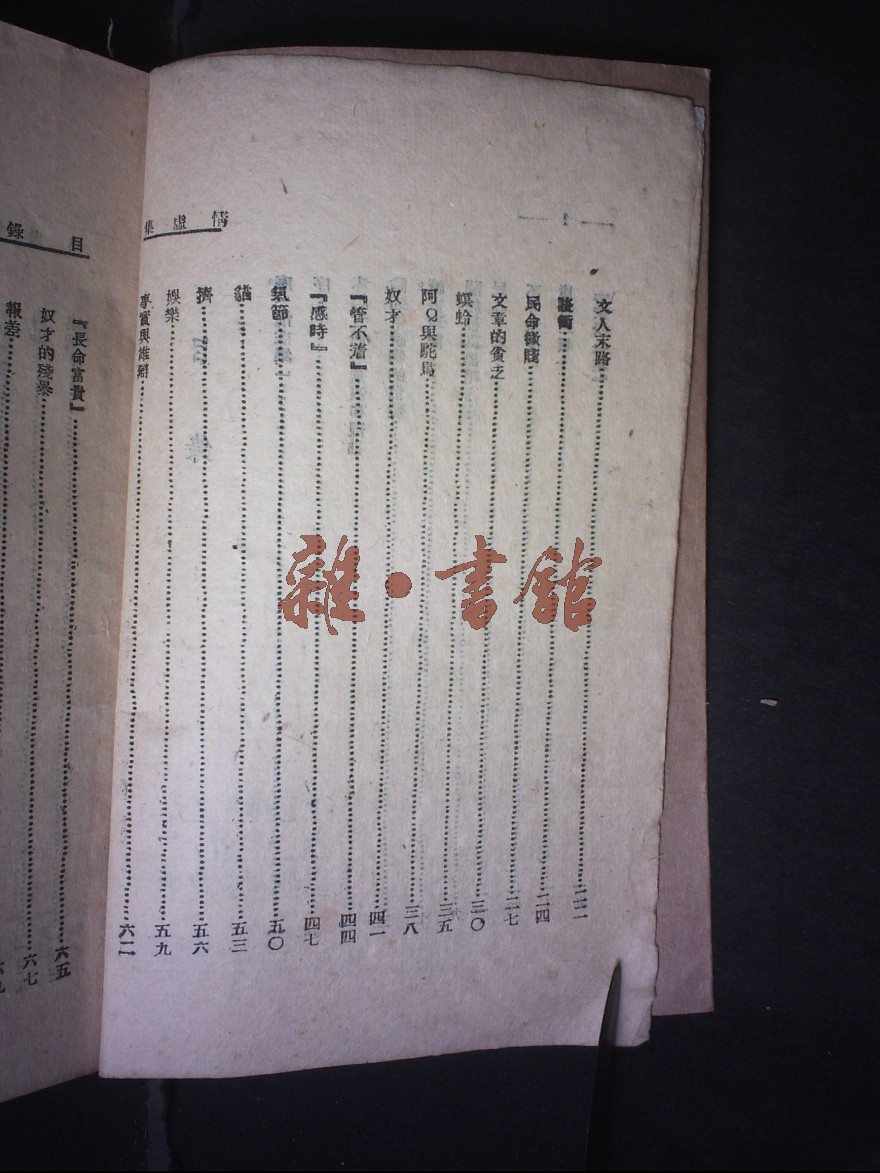 情虛集
文人末路……二二
……二四
民命微賤……二七
文章的貧乏……三〇
螟蛉……三五
阿Q與鴕鳥……三八
奴才……四一
『管不着』……四四
『感時』……四七
氣節……五〇
貓……五三
擠……五六
娛樂……五九
事實與雄辯……六二
目錄
『長命富貴』……六五
奴才的殘暴……六七
報差……六九
雜·書館